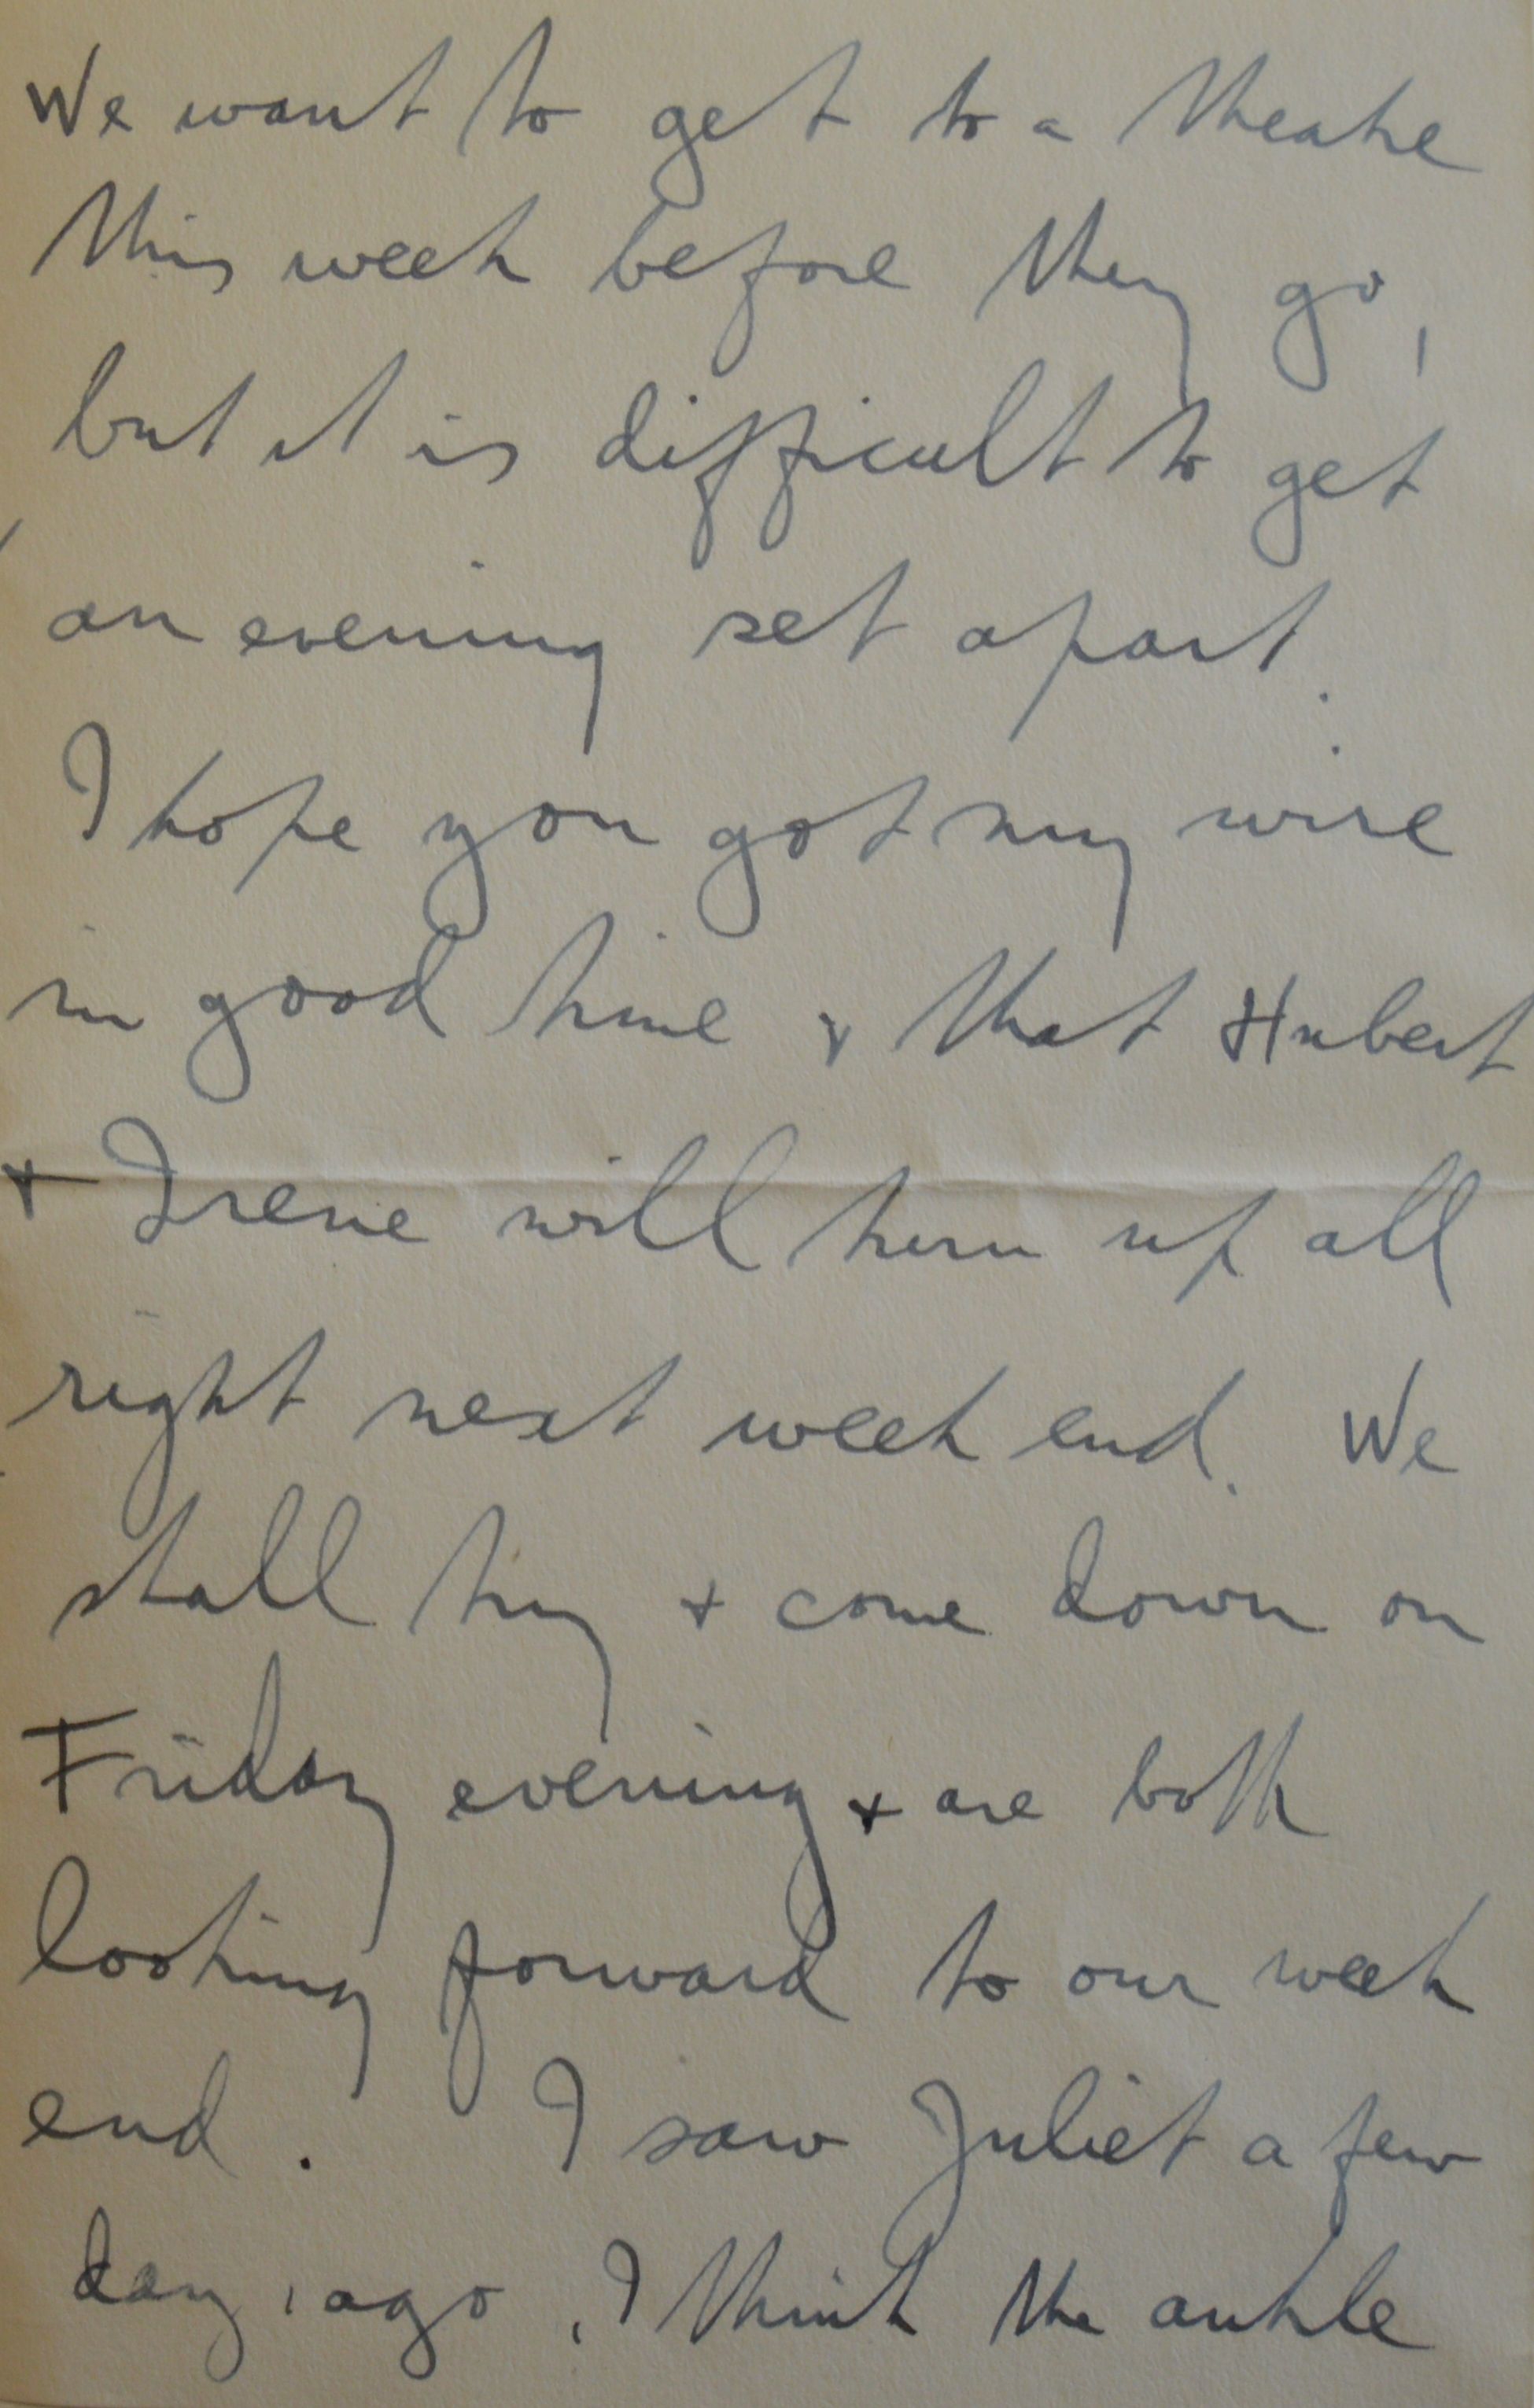 We want to get to a theatre
this week before they go,
but it is difficult to get
an evening set apart.
I hope you got my wire
in good time & that Hubert
& Irene will turn up all
right next week end. We
shall try & come down on
Friday evening & are both
looking forward to our week
end. I saw Juliet a few
days ago. I think the ankle